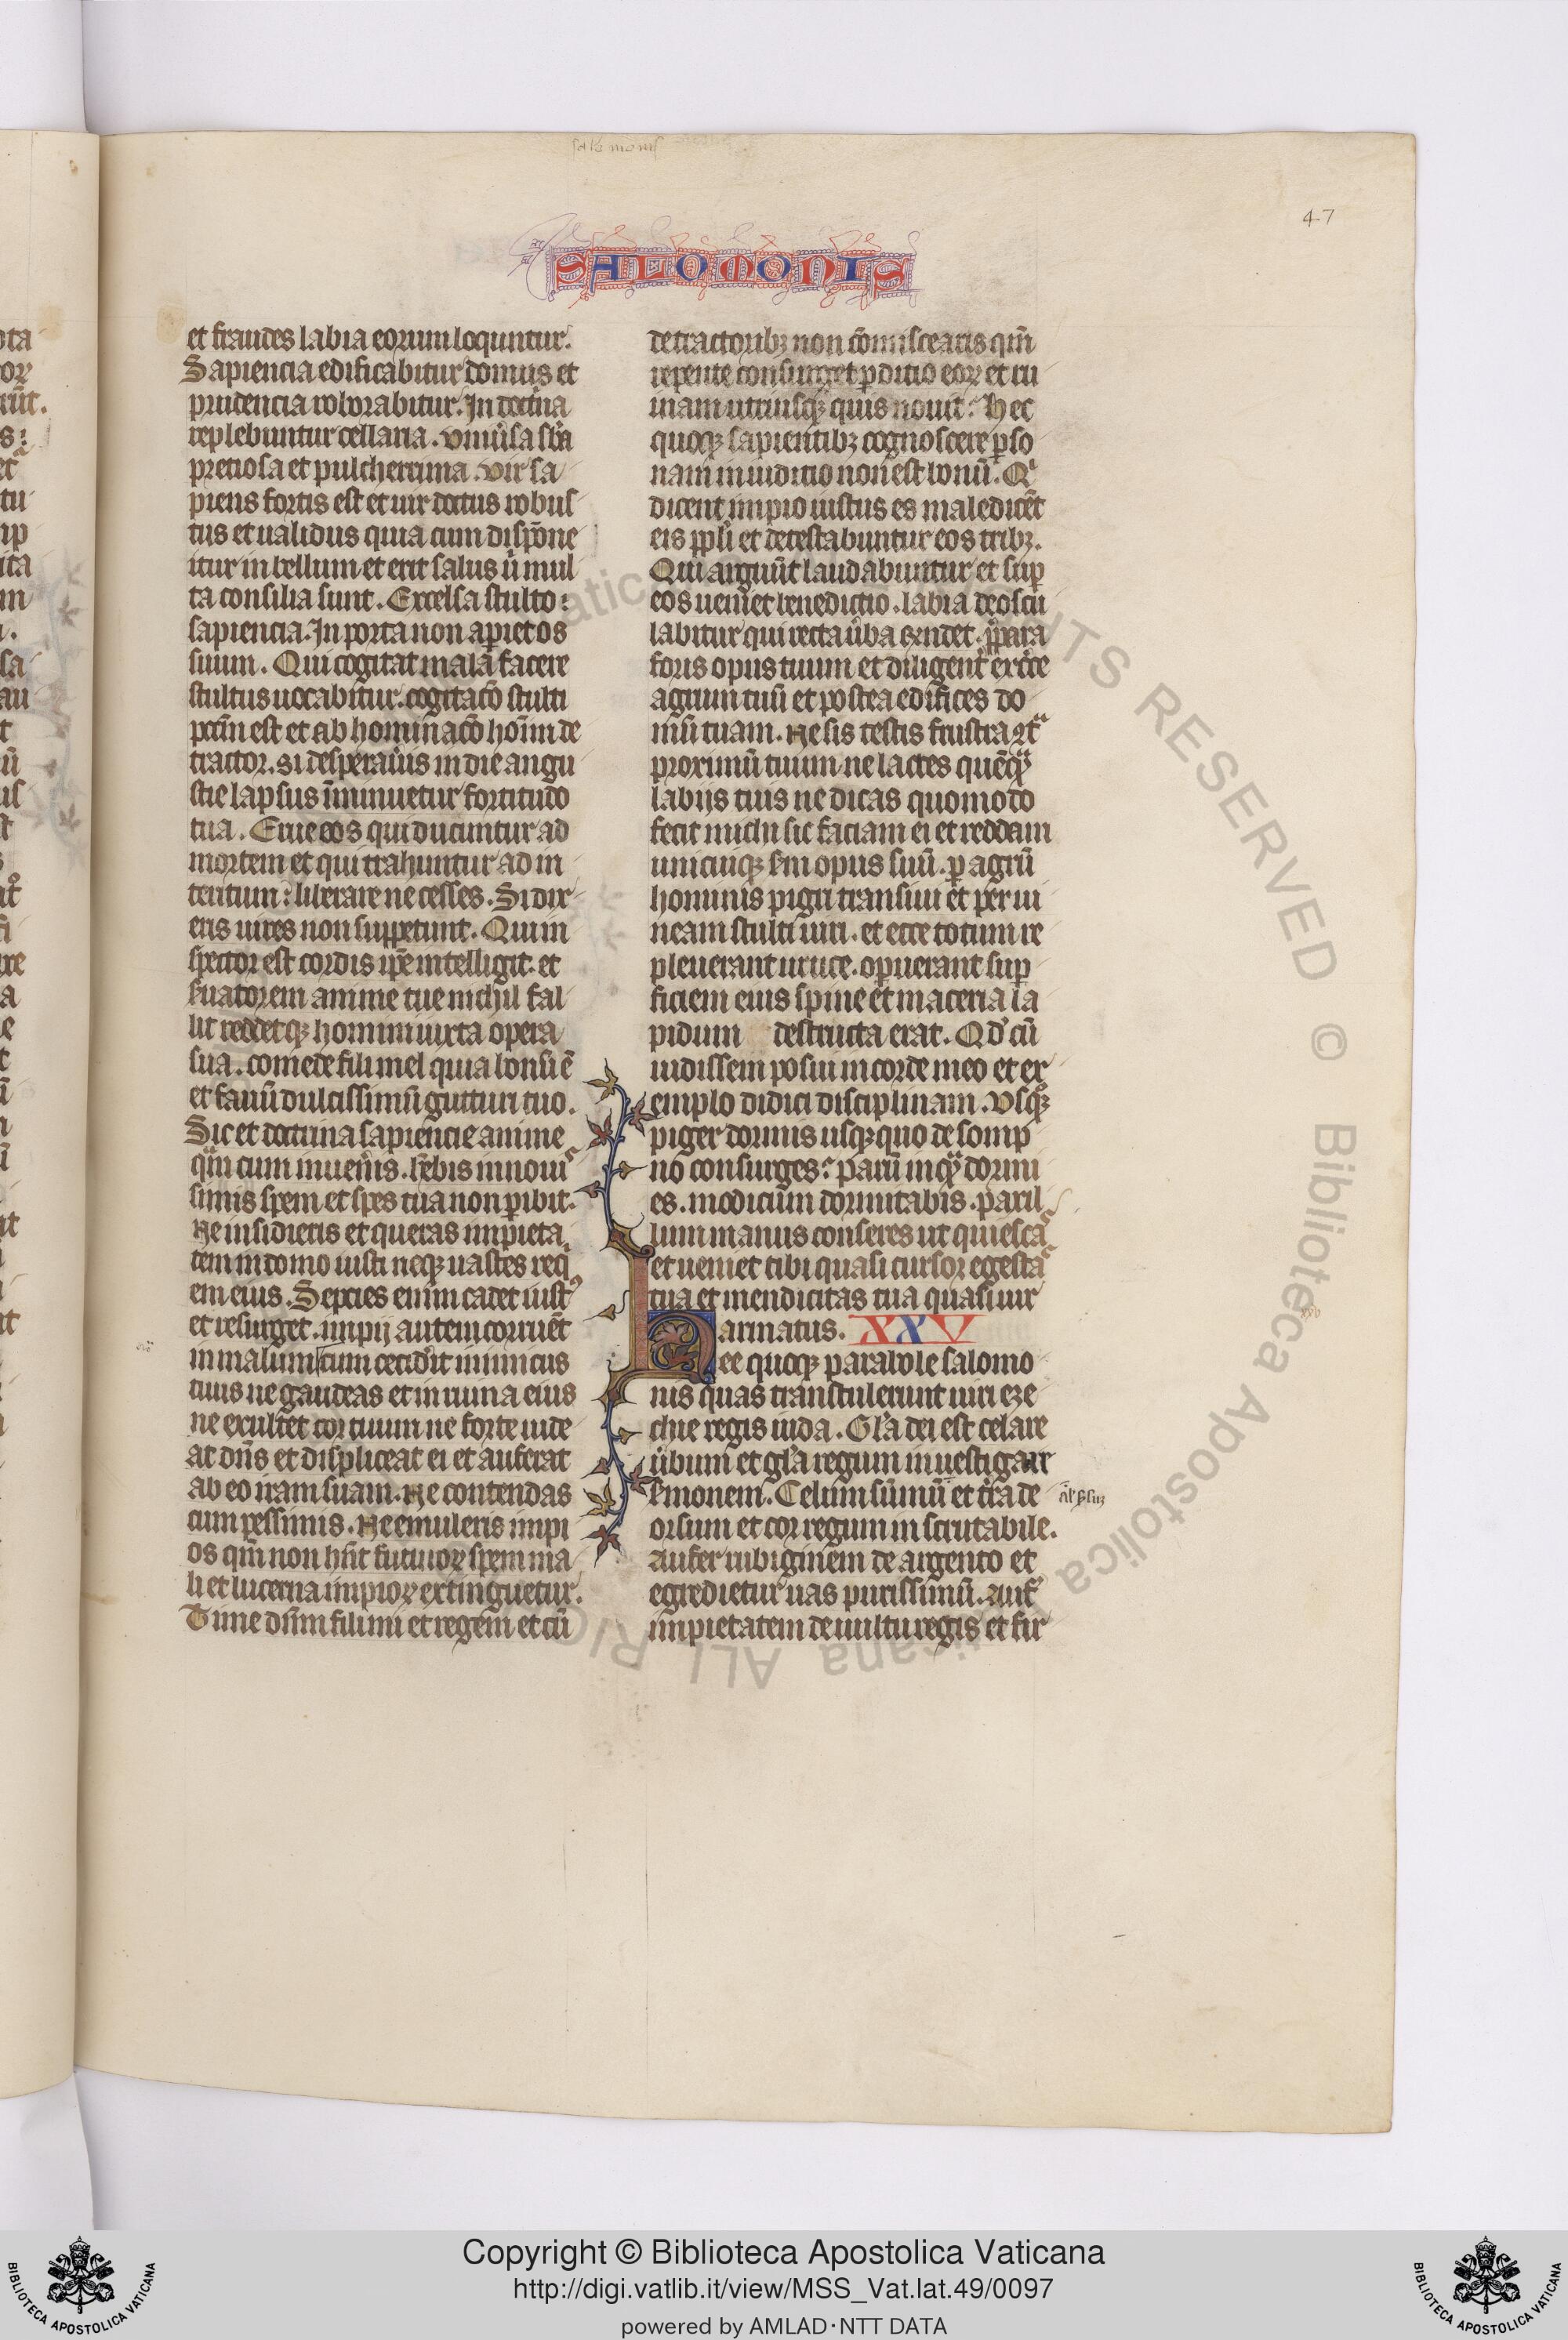 salomonis
47
SALOMONIS
et fraudes labia eorum loquntur.
Sapiencia edificabitur domus et
prudencia roborabitur. In doct̾na
replebuntur cellaria. vniu̾sa sb̃a
preciosa et pulcherrima. vir sa
piens fortis est et uir doctus robus
tus et ualidus quia cum disp̃one
itur in bellum et erit salus u̾ mul
ta consilia sunt. Excelsa stulto:
sapiencia. In porta non aꝑiet os
suum. Qui cogitat mala facere
stultus uocabitur. cogitac̃o stulti
pctm̃ est et abhominac̃o hoĩm de
tractor. si desperau̾is in die angu
stie lapsus ĩminuetur fortitudo
tua. Erue eos qui ducuntur ad
mortem et qui trahuntur ad in
teritum: liberare ne cesses. Si dix
eris uires non suppetunt. Qui in
spector est cordis ip̃e intelligit. et
s̾uatorem anime tue nichil fal
lit reddetqꝫ homini iuxta opera
sua. comede fili mel quia bonũ ẽ
et fauũ dulcissimũ gutturi tuo.
Sic et doctrina sapiencie anime
qm̃ cum inuen̾is. hẽbis in noui
simis spem et spes tua non ꝑibit.
Ne insidieris et queras impieta
tem in domo iusti neqꝫ uastes req̾
em eius. Sepcies enim cadet iustꝰ
et resurget. impij autem corruẽt
in malum cum cecid̾it inimicus
tuus ne gaudeas et in ruina eius
ne exultet cor tuum ne forte uide
at dñs et displiceat ei et auferat
ab eo iram suam. Ne contendas
cum pessimis. Ne emuleris impi
os qm̃ non hñt futuroꝝ spem ma
li et lucerna impioꝝ extinguetur.
Time dñm fili mi et regem et cũ
detractoribꝫ non cõmiscearis qm̃
repente consurget ꝑditio eoꝝ et ru
inam utriusqꝫ quis nouit: Hec
quoqꝫ sapientibꝫ cognoscere ꝑso
nam in iuditio non est bonũ. Qͥ
dicent impio iustus es maledicẽt
eis ppl̾i et detestabuntur eos tribꝫ.
Qui arguũt laudabuntur et suꝑ
eos ueniet benedictio. labia deoscu
labitur qui recta u̾ba rñdet. p̾para
foris opus tuum et diligent̾ ex̾ce
agrum tuũ et postea edifices do
mũ tuam. Ne sis testis frustra ꝯtͣ
proximũ tuum ne lactes quẽqͣ
labijs tuis ne dicas quomodo
fecit michi sic faciam ei et reddam
unicuiqꝫ sm̃ opus suũ. ꝑ agrũ
hominis pigri transiui et per ui
neam stulti uiri. et ecce totum re
pleuerant urtice. opuerant suꝑ
ficiem eius spine et maceria la
pidum destructa erat. Qd̾ cũ
uidissem posui in corde meo et ex
emplo didici disciplinam. Vsqꝫ
piger dormis usqꝫ quo de somp
no consurges: parũ inqͣ dormi
es. modicum dormitabis. paxil
lum manus conseres ut quiesca
et ueniet tibi quasi cursor egesta
tua et mendicitas tua quasi uir
armatus. XXV
Hee quoqꝫ parabole salomo
nis quas transtulerunt uiri eze
chie regis iuda. Gl̃a dei est celare
u̾bum et gl̃a regum inuestigare
s̾monem. Celum sũmũ et t̾ra de
orsum et cor regum inscrutabile.
Aufer rubiginem de argento et
egredietur uas purissimũ. Auf̾
impietatem de uultu regis et fir
ALL RIGHTS RESERVED © Biblioteca Apostolica Vaticana
Copyright © Biblioteca Apostolica Vaticana
http://digi.vatlib.it/view/MSS_Vat.lat.49/0097
powered by AMLAD·NTT DATA
BIBLIOTECA APOSTOLICA VATICANA
BIBLIOTECA APOSTOLICA VATICANA